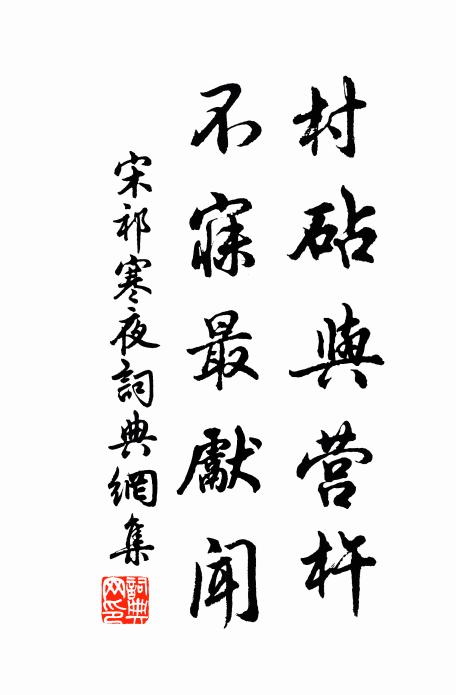 村砧與营杵
不寐最獻聞
宋祁寒夜詞典網集
詞典
网印